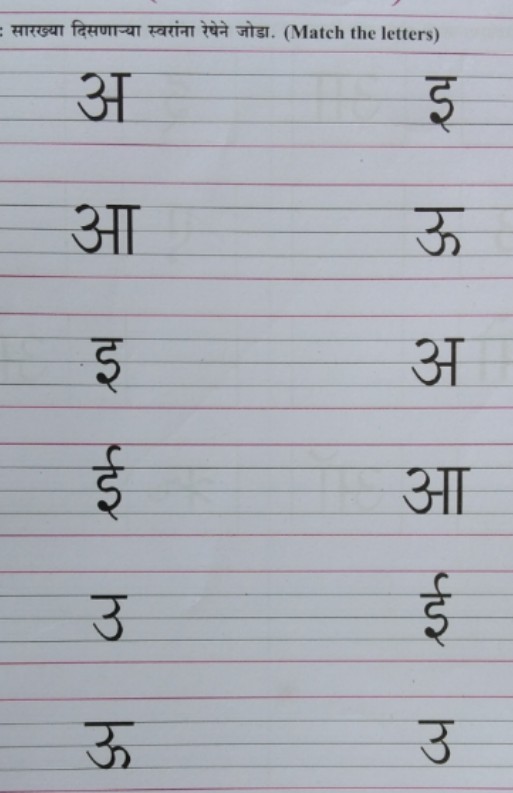 : सारख्या दिसणाऱ्या स्वरांना रेषेने जोडा. (Match the letters)
अ इ
आ ऊ
इ अ
ई आ
उ ई
ऊ उ